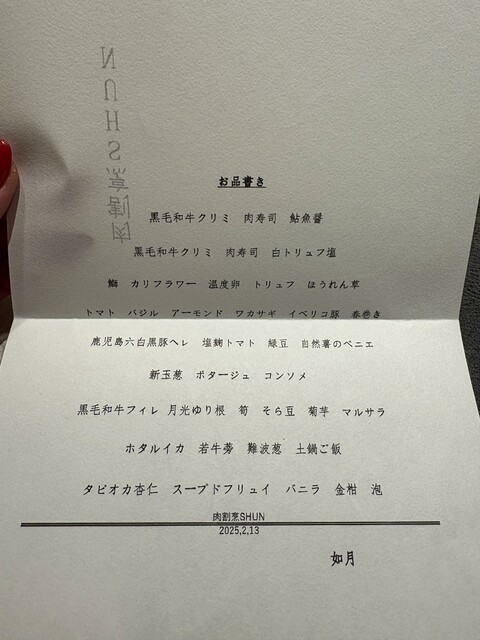 肉割烹SHUN
お品書き
黒毛和牛クリミ 肉寿司 鮎魚醤
黒毛和牛クリミ 肉寿司 白トリュフ塩
鰤 カリフラワー 温度卵 トリュフ ほうれん草
トマト バジル アーモンド ワカサギ イベリコ豚 春巻き
鹿児島六白黒豚ヘレ 塩麹トマト 緑豆 自然薯のベニエ
新玉葱 ポタージュ コンソメ
黒毛和牛フィレ 月光ゆり根 筍 そら豆 菊芋 マルサラ
ホタルイカ 若牛蒡 難波葱 土鍋ご飯
タピオカ杏仁 スープドフリュイ バニラ 金柑 泡
肉割烹SHUN
2025,2,13
如月